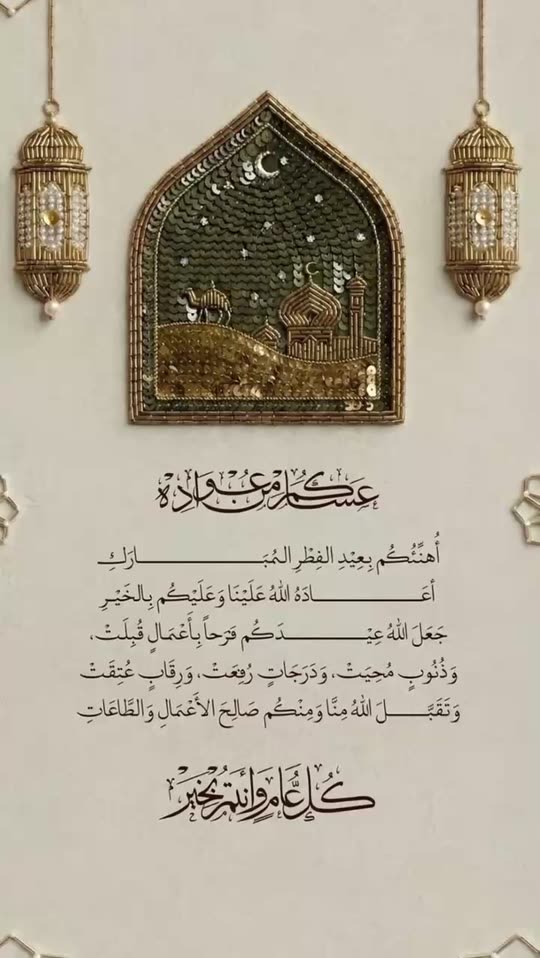 عَسَاكُم مِن عُوَّادِه
أُهنِّئُكُم بِعِيْدِ الفِطْرِ المُبَـارَكِ
أَعَـادَهُ اللهُ عَلَيْنَا وَعَلَيْكُم بِالخَيْرِ
جَعَلَ اللهُ عِيْـدَكُم فَرَحاً بِأَعْمَالٍ قُبِلَتْ،
وَذُنُوبٍ مُحِيَتْ، وَدَرَجَاتٍ رُفِعَتْ، وَرِقَابٍ عُتِقَتْ
وَتَقَبَّـلَ اللهُ مِنَّا وَمِنْكُم صَالِحَ الأَعْمَالِ وَالطَّاعَاتِ
كُلُّ عَامٍ وَأَنتُم بِخَيْر